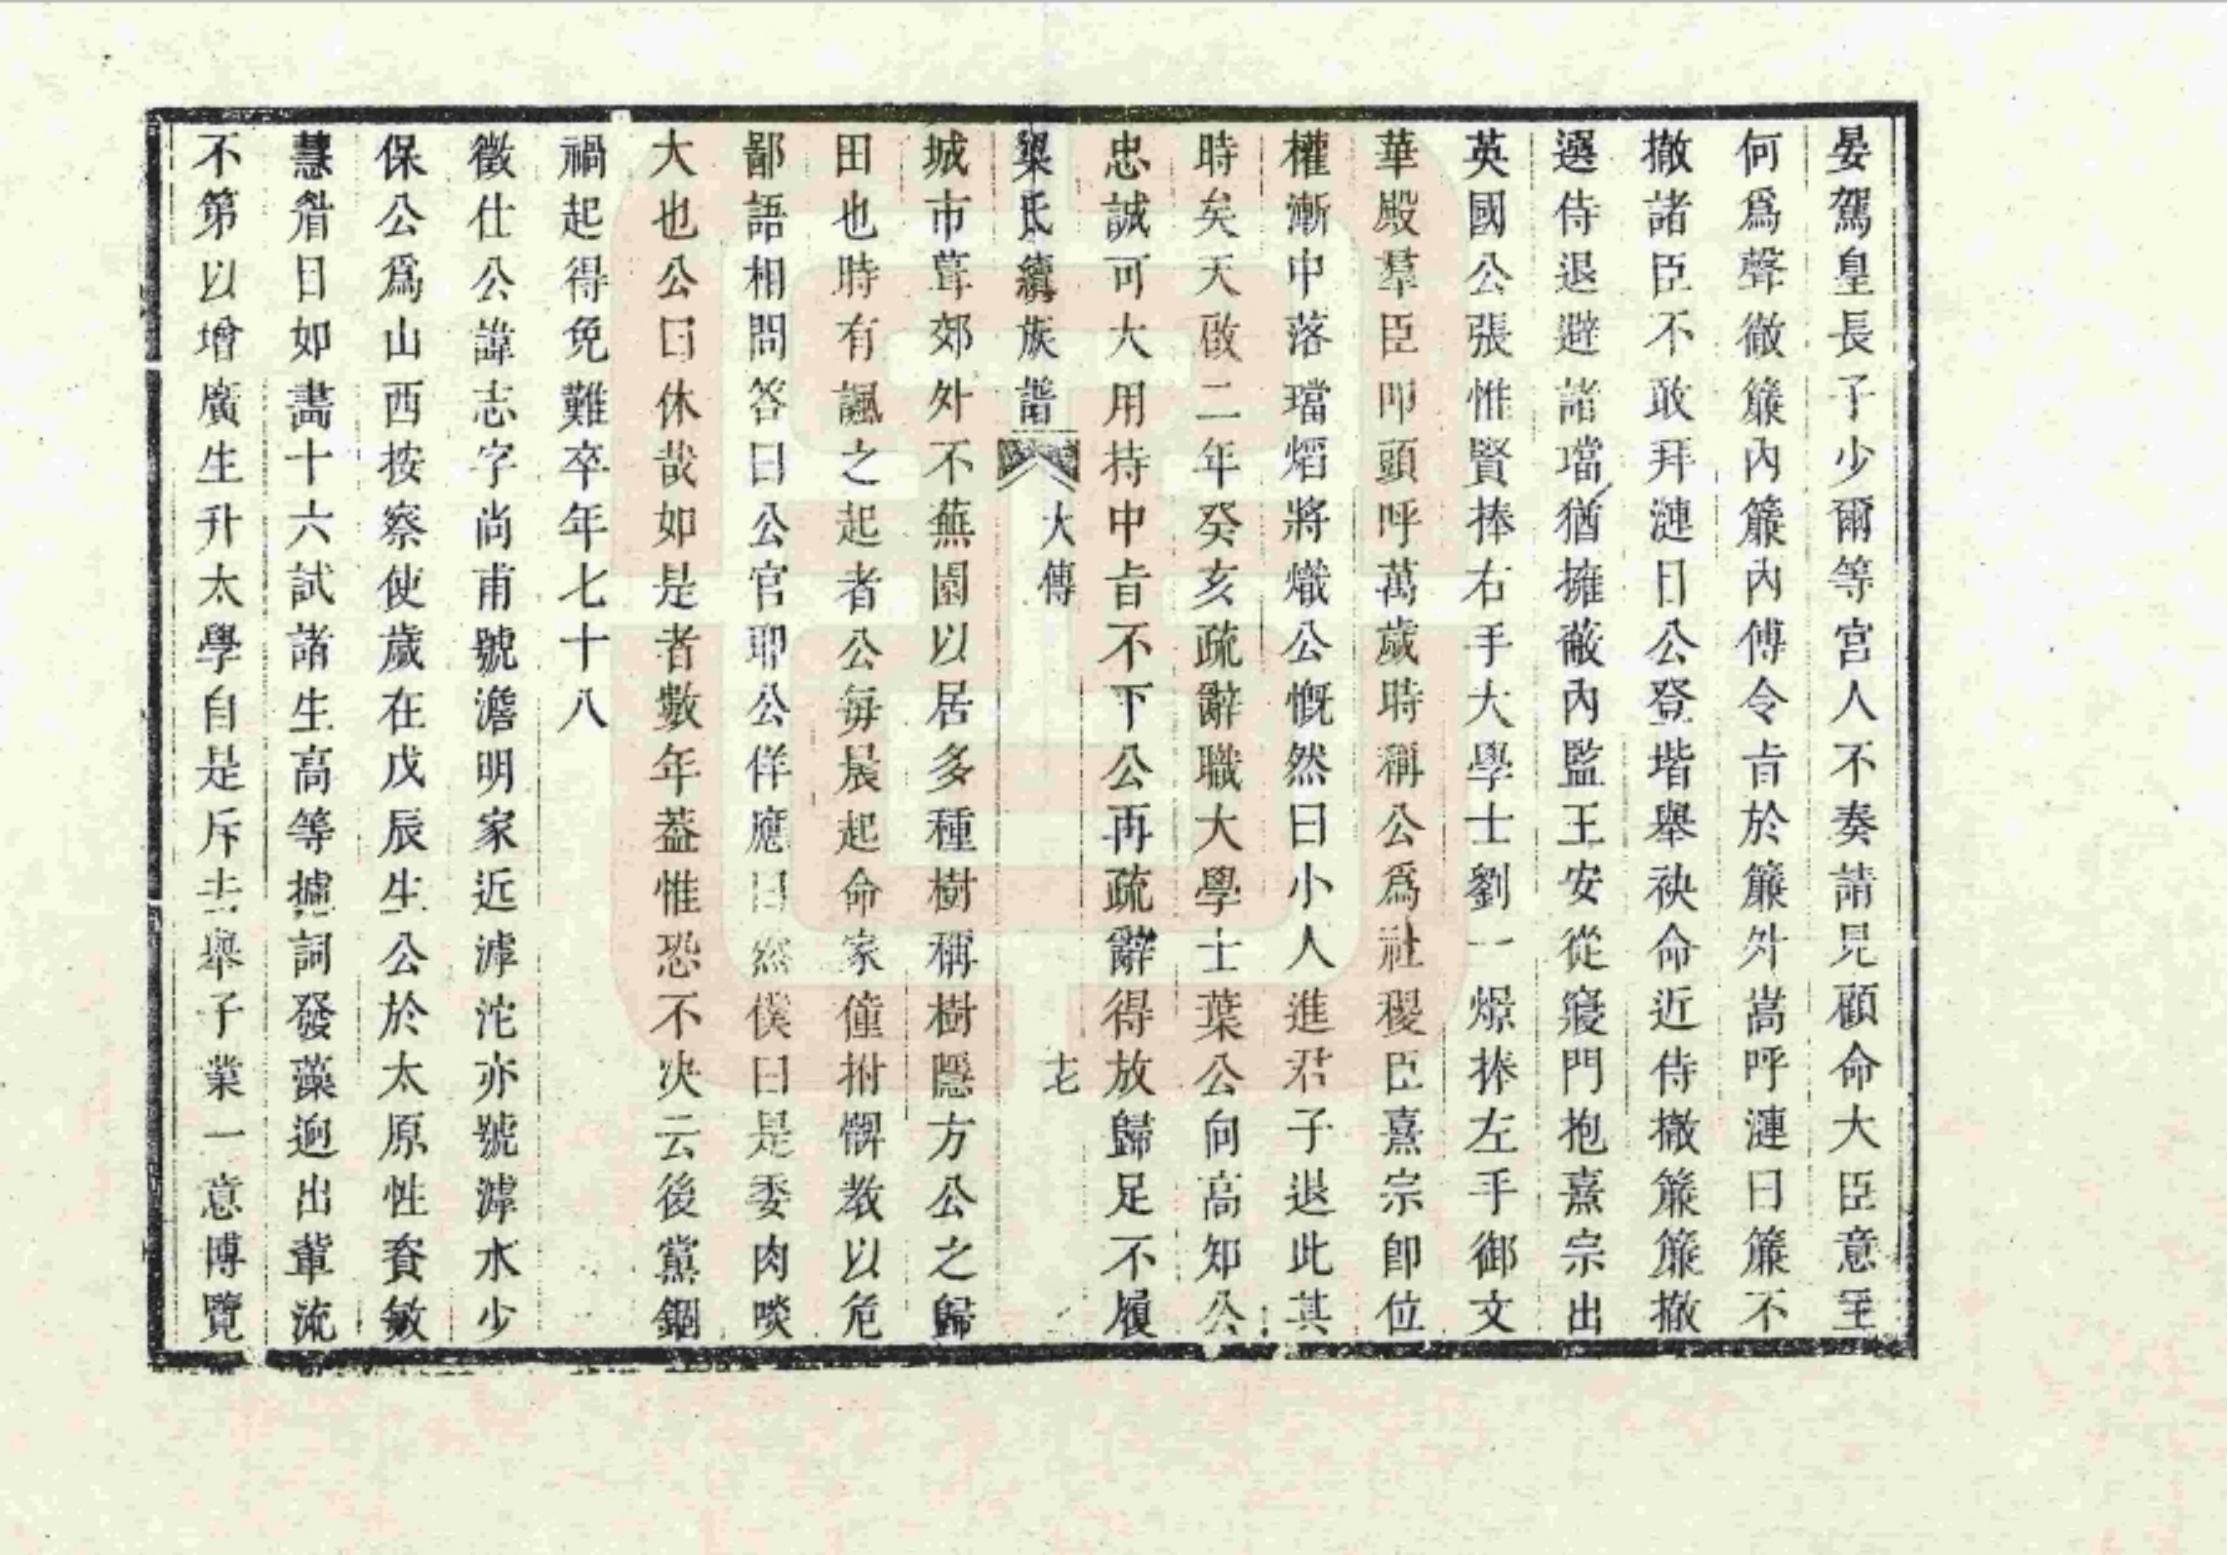 晏駕皇長子少爾等宮人不奏請見顧命大臣意至
何爲聲徹簾內簾內傅令㫖於簾外嵩呼漣曰簾不
撤諸臣不敢拜漣曰公登堦舉袂命近侍撤簾簾撤
選侍退避諸璫猶擁蔽內監王安從寢門抱熹宗出
英國公張惟賢捧右手大學士劉一燝捧左手御文
華殿羣臣叩頭呼萬歲時稱公爲社稷臣熹宗卽位
權漸中落璫熖將熾公慨然曰小人進君子退此其
時矣天啟二年癸亥疏辭職大學士葉公向高知公
忠誠可大用持中㫖不下公再疏辭得放歸足不履
梁氏續族譜 大傳 十七
城市葺郊外不蕪園以居多種樹稱樹隱方公之歸
田也時有諷之起者公每晨起命家僮拊髀教以危
鄙語相問答曰公官耶公佯應曰然僕曰是委肉啖
大也公曰休哉如是者數年葢惟恐不决云後黨錮
禍起得免難卒年七十八
徵仕公諱志字尚甫號澹明家近滹沱亦號滹水少
保公爲山西按察使歲在戊辰生公於太原性資敏
慧眉目如畵十六試諸生高等攄詞發藻逈出輩流
不第以增廣生升太學自是斥去舉子業一意博覽